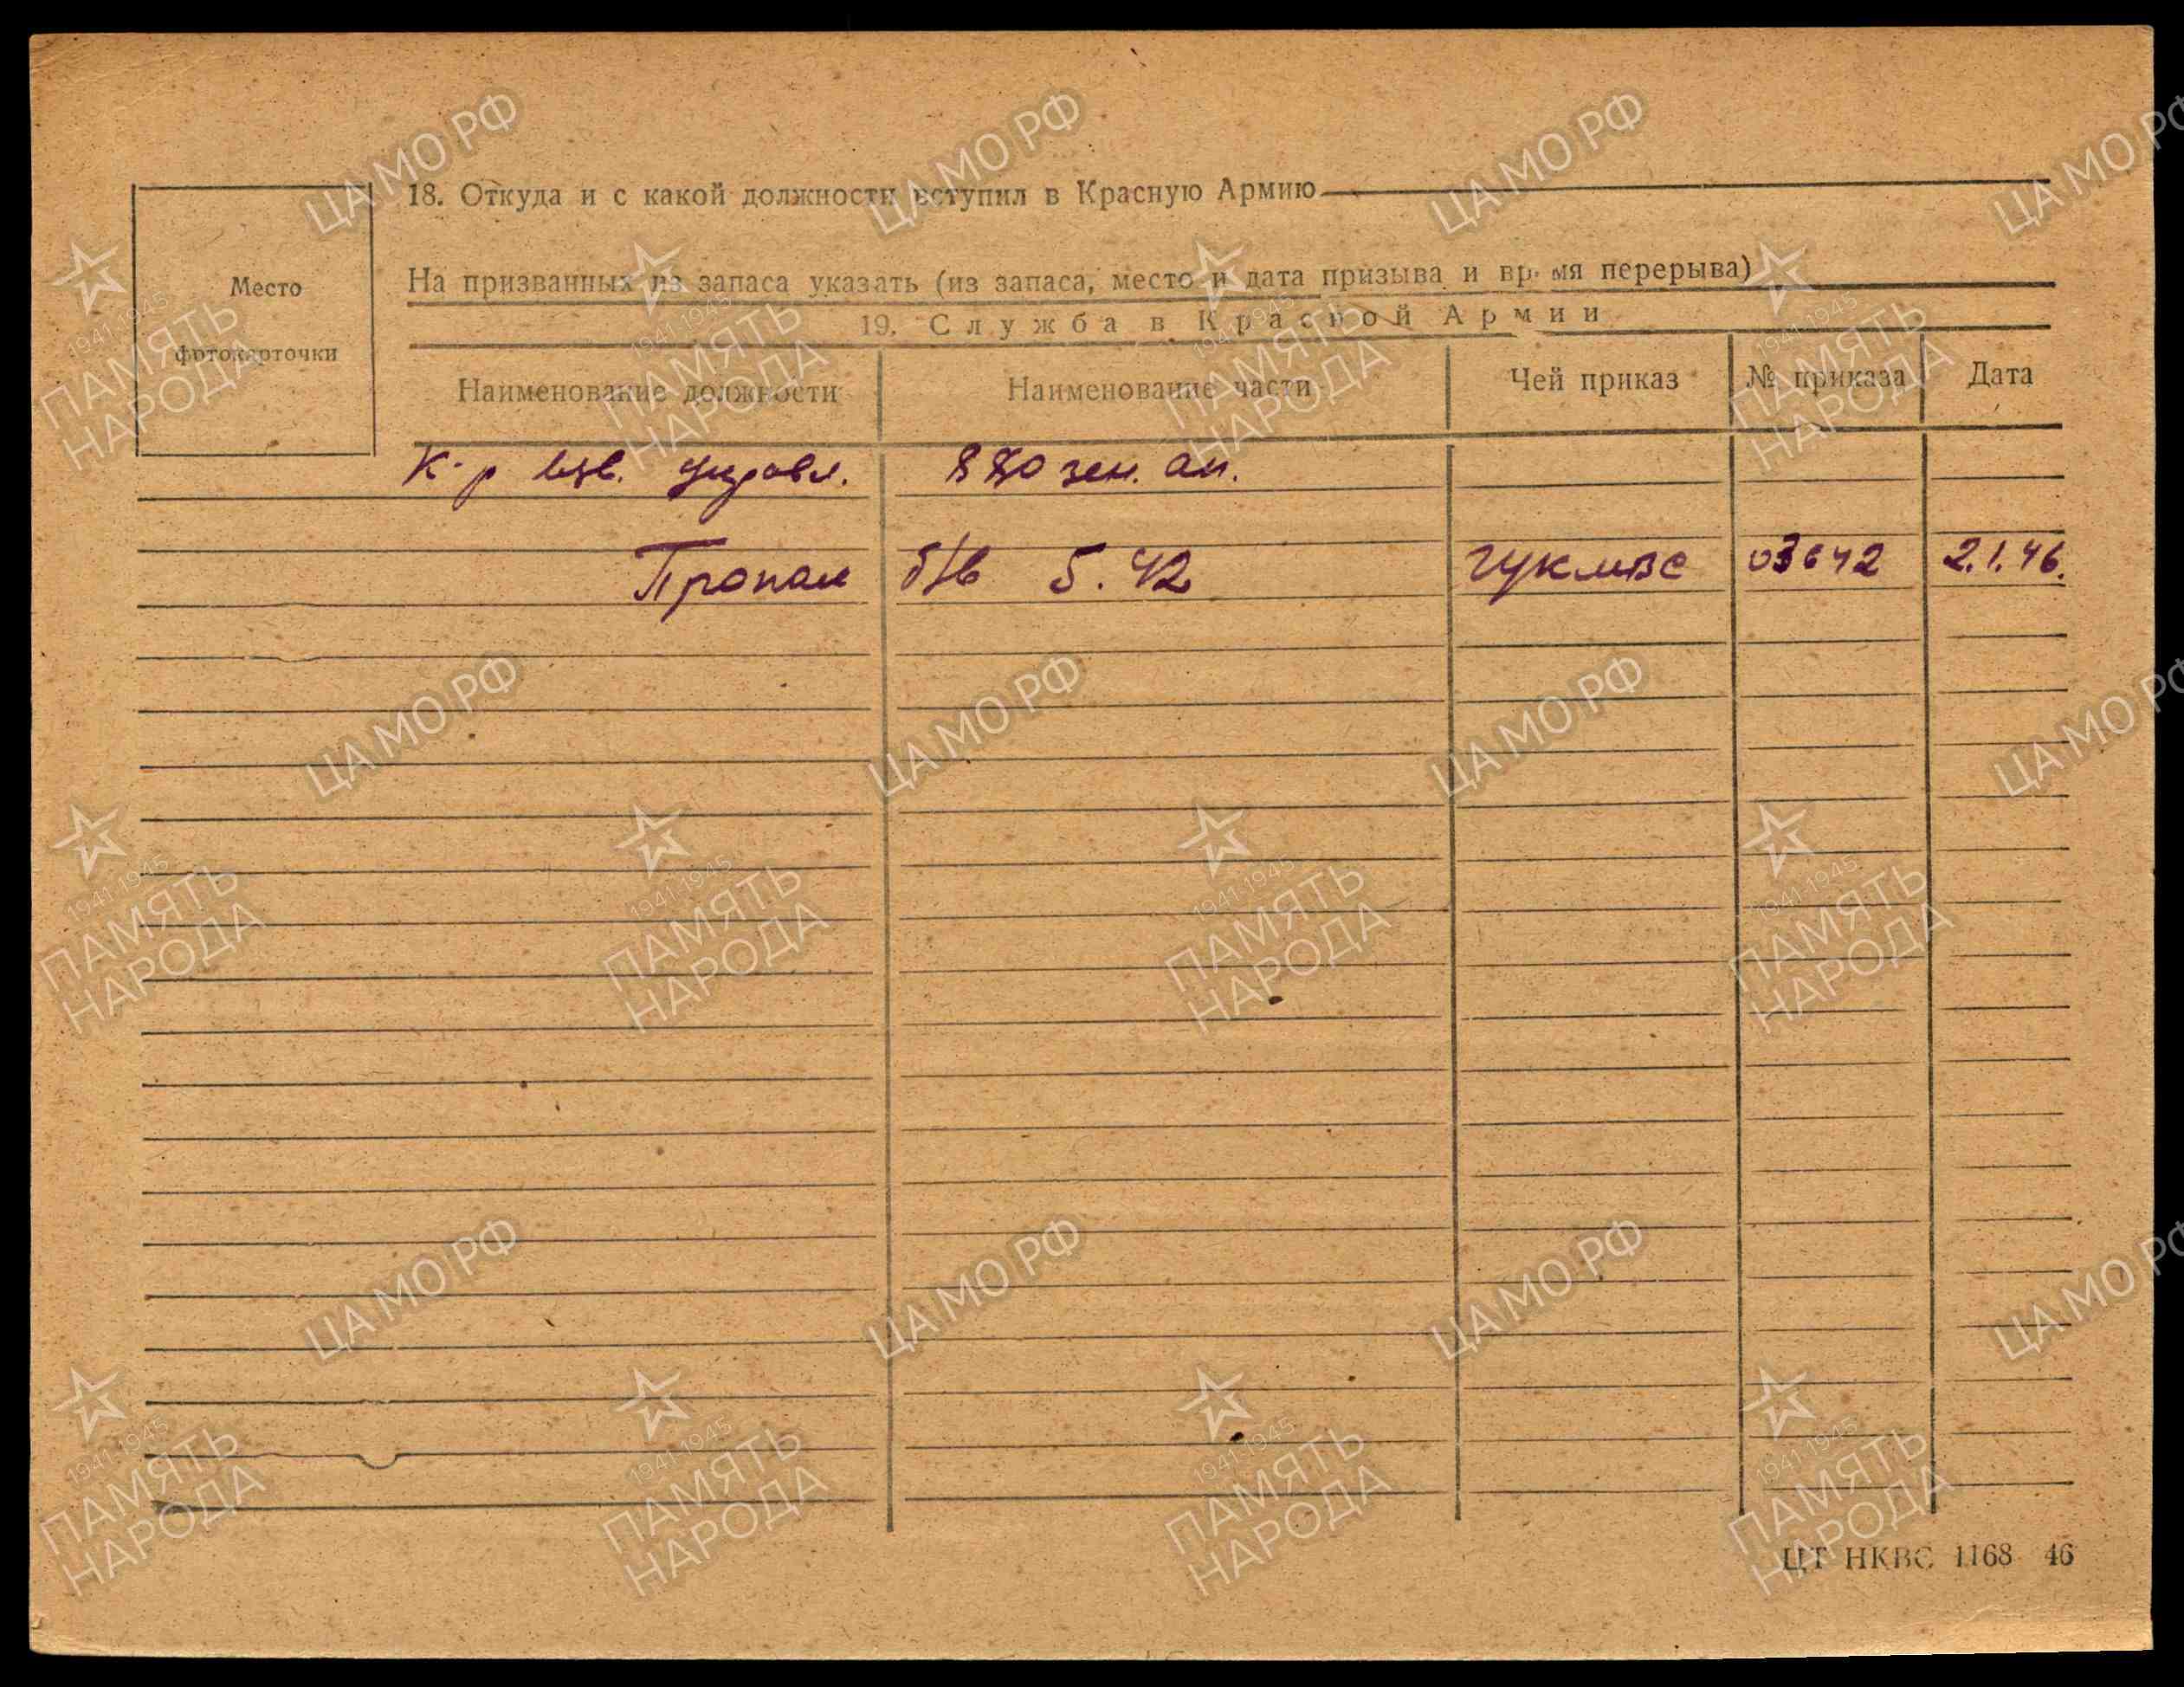 18. Откуда и с какой должности вступил в Красную Армию
На призванных из запаса указать (из запаса, место и дата призыва и время перерыва)
Место
фотокарточки
19. Служба в Красной Армии
Наименование должности Наименование части Чей приказ № приказа Дата
К-р взв. управл. 880 зен. ап.
Пропал б/в 5.42 ГУК МВС 03642 2.1.46.
ЦТ НКВС 1168 46
ЦАМО РФ
1941-1945
ПАМЯТЬ
НАРОДА